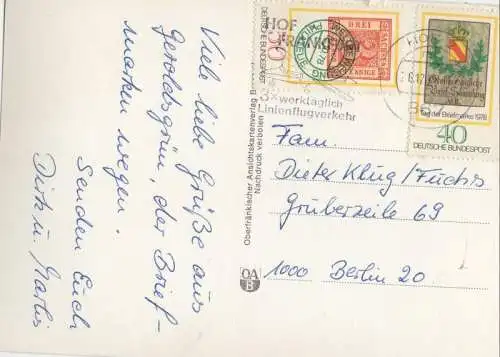 Viele liebe Grüße aus
Geroldsgrün, der Brief-
marken wegen.
Senden Euch
Dirk u. Marlis
Oberfränkischer Ansichtskartenverlag B
Nachdruck verboten
OA
B
50
DEUTSCHE BUNDESPOST
DREI
PFENNIGE
HOF
FRANKFURT
3x werktäglich
Linienflugverkehr
HOF
Tag der Briefmarke 1978
40
DEUTSCHE BUNDESPOST
Fam.
Dieter Klug/Fuchs
Grüberzeile 69
1000 Berlin 20